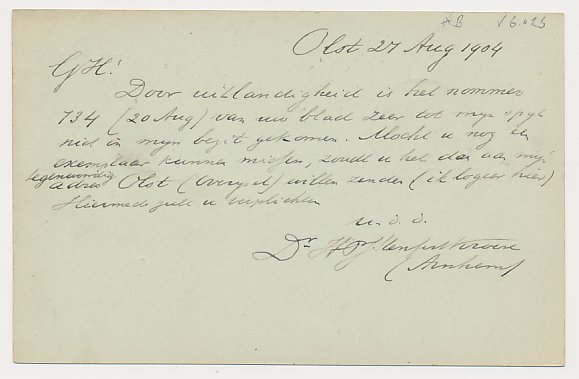 Olst. 27 Aug 1904
GH!
Door uitlandigheid is het nommer
734 (20 Aug) van uw blad zeer tot mijn spijt
niet in mijn bezit gekomen. Mocht u nog een
exemplaar kunnen missen, zoudt u het dan aan mijn
tegenwoordig
adres Olst (Overijsel) willen zenden (ik logeer hier)
Hiermede zult u verplichten
u. d. d.
Dr
(Arnhem)